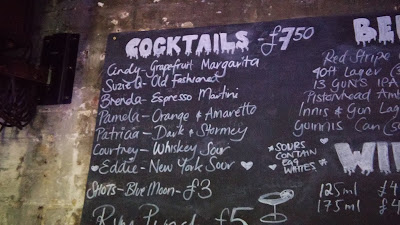 COCKTAILS - £7.50
Cindy - Grapefruit Margarita
Suzie Q - Old Fashioned
Brenda - Espresso Martini
Pamela - Orange & Amaretto
Patricia - Dark & Stormey
Courtney - Whiskey Sour
Eddie - New York Sour
SHOTS - Blue Moon - £3
Rum Punch £5
*SOURS CONTAIN EGG WHITES*
BE
Red Stripe
Lager
13 GUNS IPA
Pistonhead
Innis & Gun Lag
Can
WI
125ml £4
175ml £